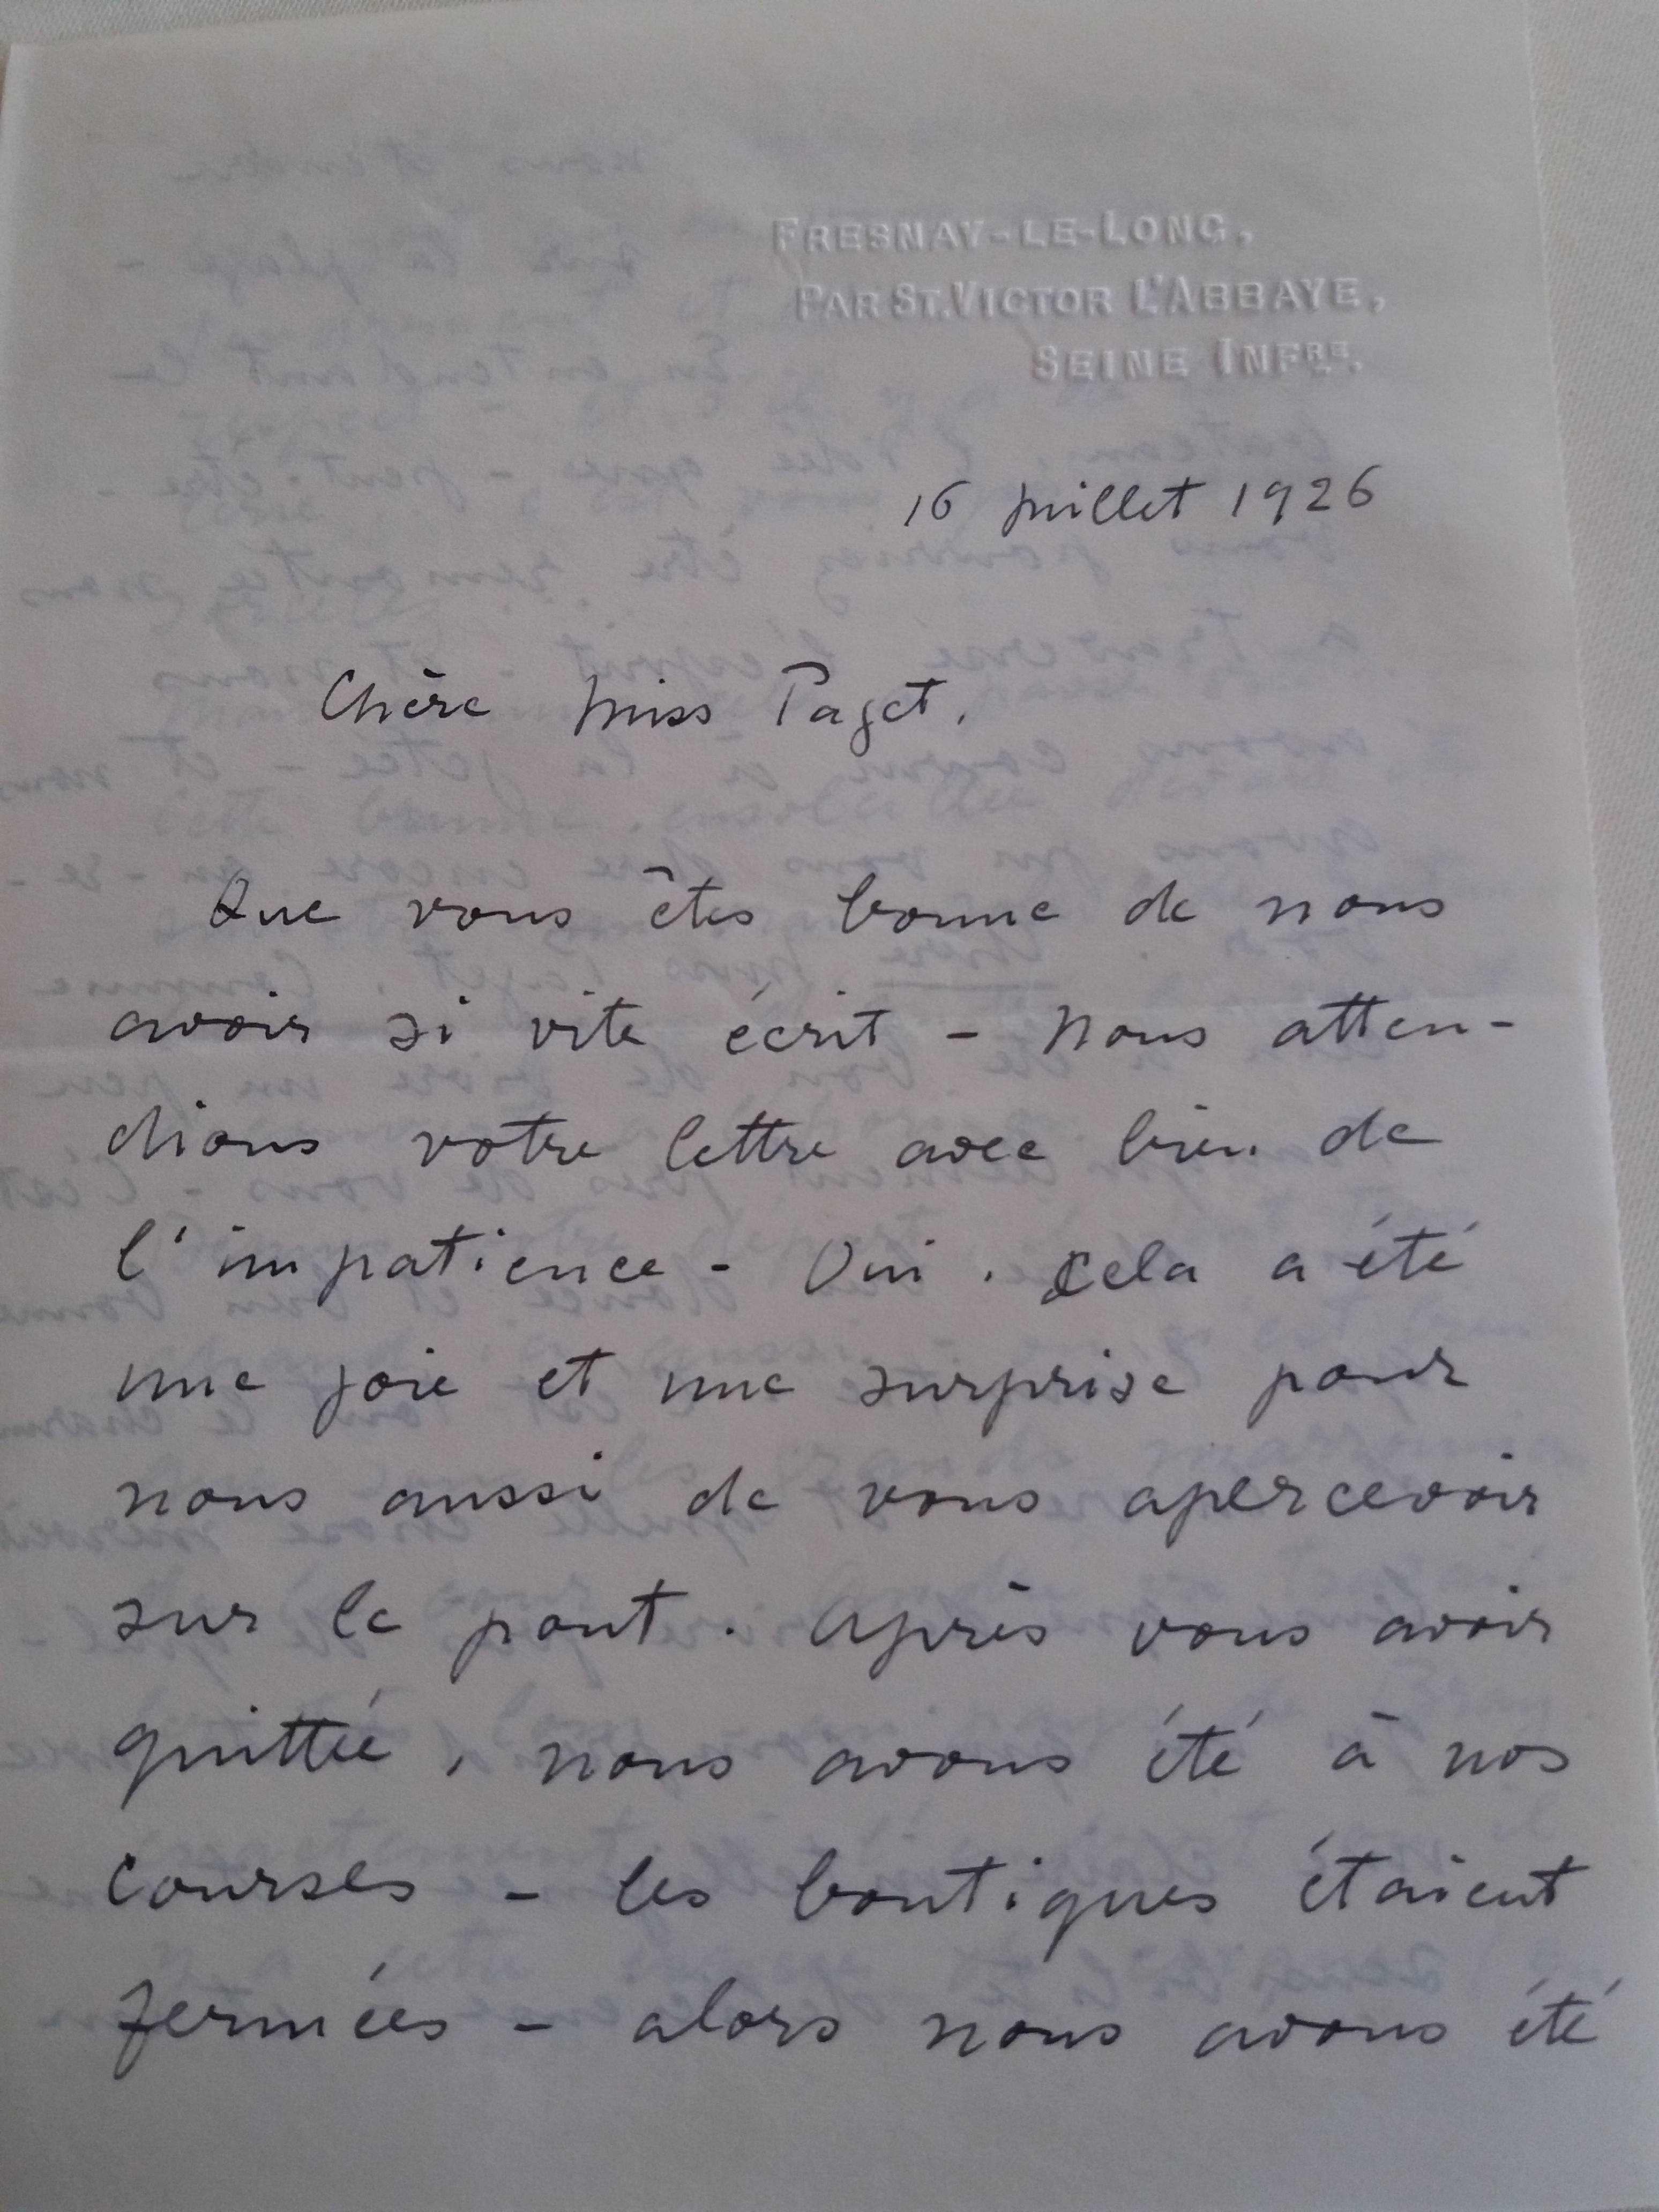 FRESNAY-LE-LONG,
PAR ST. VICTOR L'ABBAYE,
SEINE INFRE.
16 juillet 1926
Chère Miss Paget,
Que vous êtes bonne de nous
avoir si vite écrit - Nous atten-
dions votre lettre avec bien de
l'impatience - Oui. Cela a été
une joie et une surprise pour
nous aussi de vous apercevoir
sur le pont. Après vous avoir
quittée, nous avons été à nos
courses - les boutiques étaient
fermées - alors nous avons été